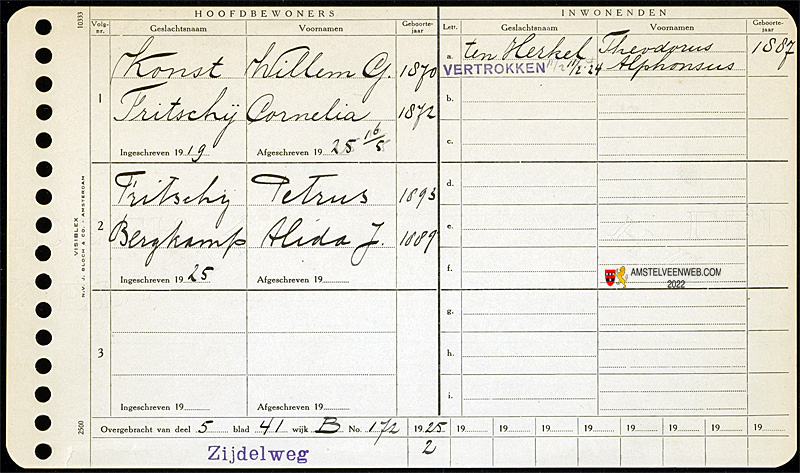 HOOFDBEWONERS
Volg-nr. Geslachtsnaam Voornamen Geboorte-jaar
1 Konst Willem G. 1870
Fritschij Cornelia 1872
Ingeschreven 19 19 Afgeschreven 19 25 16/5
2 Fritschij Petrus 1893
Bergkamp Alida J. 1889
Ingeschreven 19 25 Afgeschreven 19
3
Ingeschreven 19 Afgeschreven 19
INWONENDEN
Lett. Geslachtsnaam Voornamen Geboorte-jaar
a. ten Herkel Theodorus 1887
VERTROKKEN Alphonsus
b.
c.
d.
e.
f.
g.
h.
i.
AMSTELVEENWEB.COM
2022
Overgebracht van deel 5 blad 41 wijk B No. 172 1925 19 19 19 19 19 19 19 19
2
Zijdelweg
10333
VISIBLEX
N.V. J. BLOCH & CO. AMSTERDAM
2500